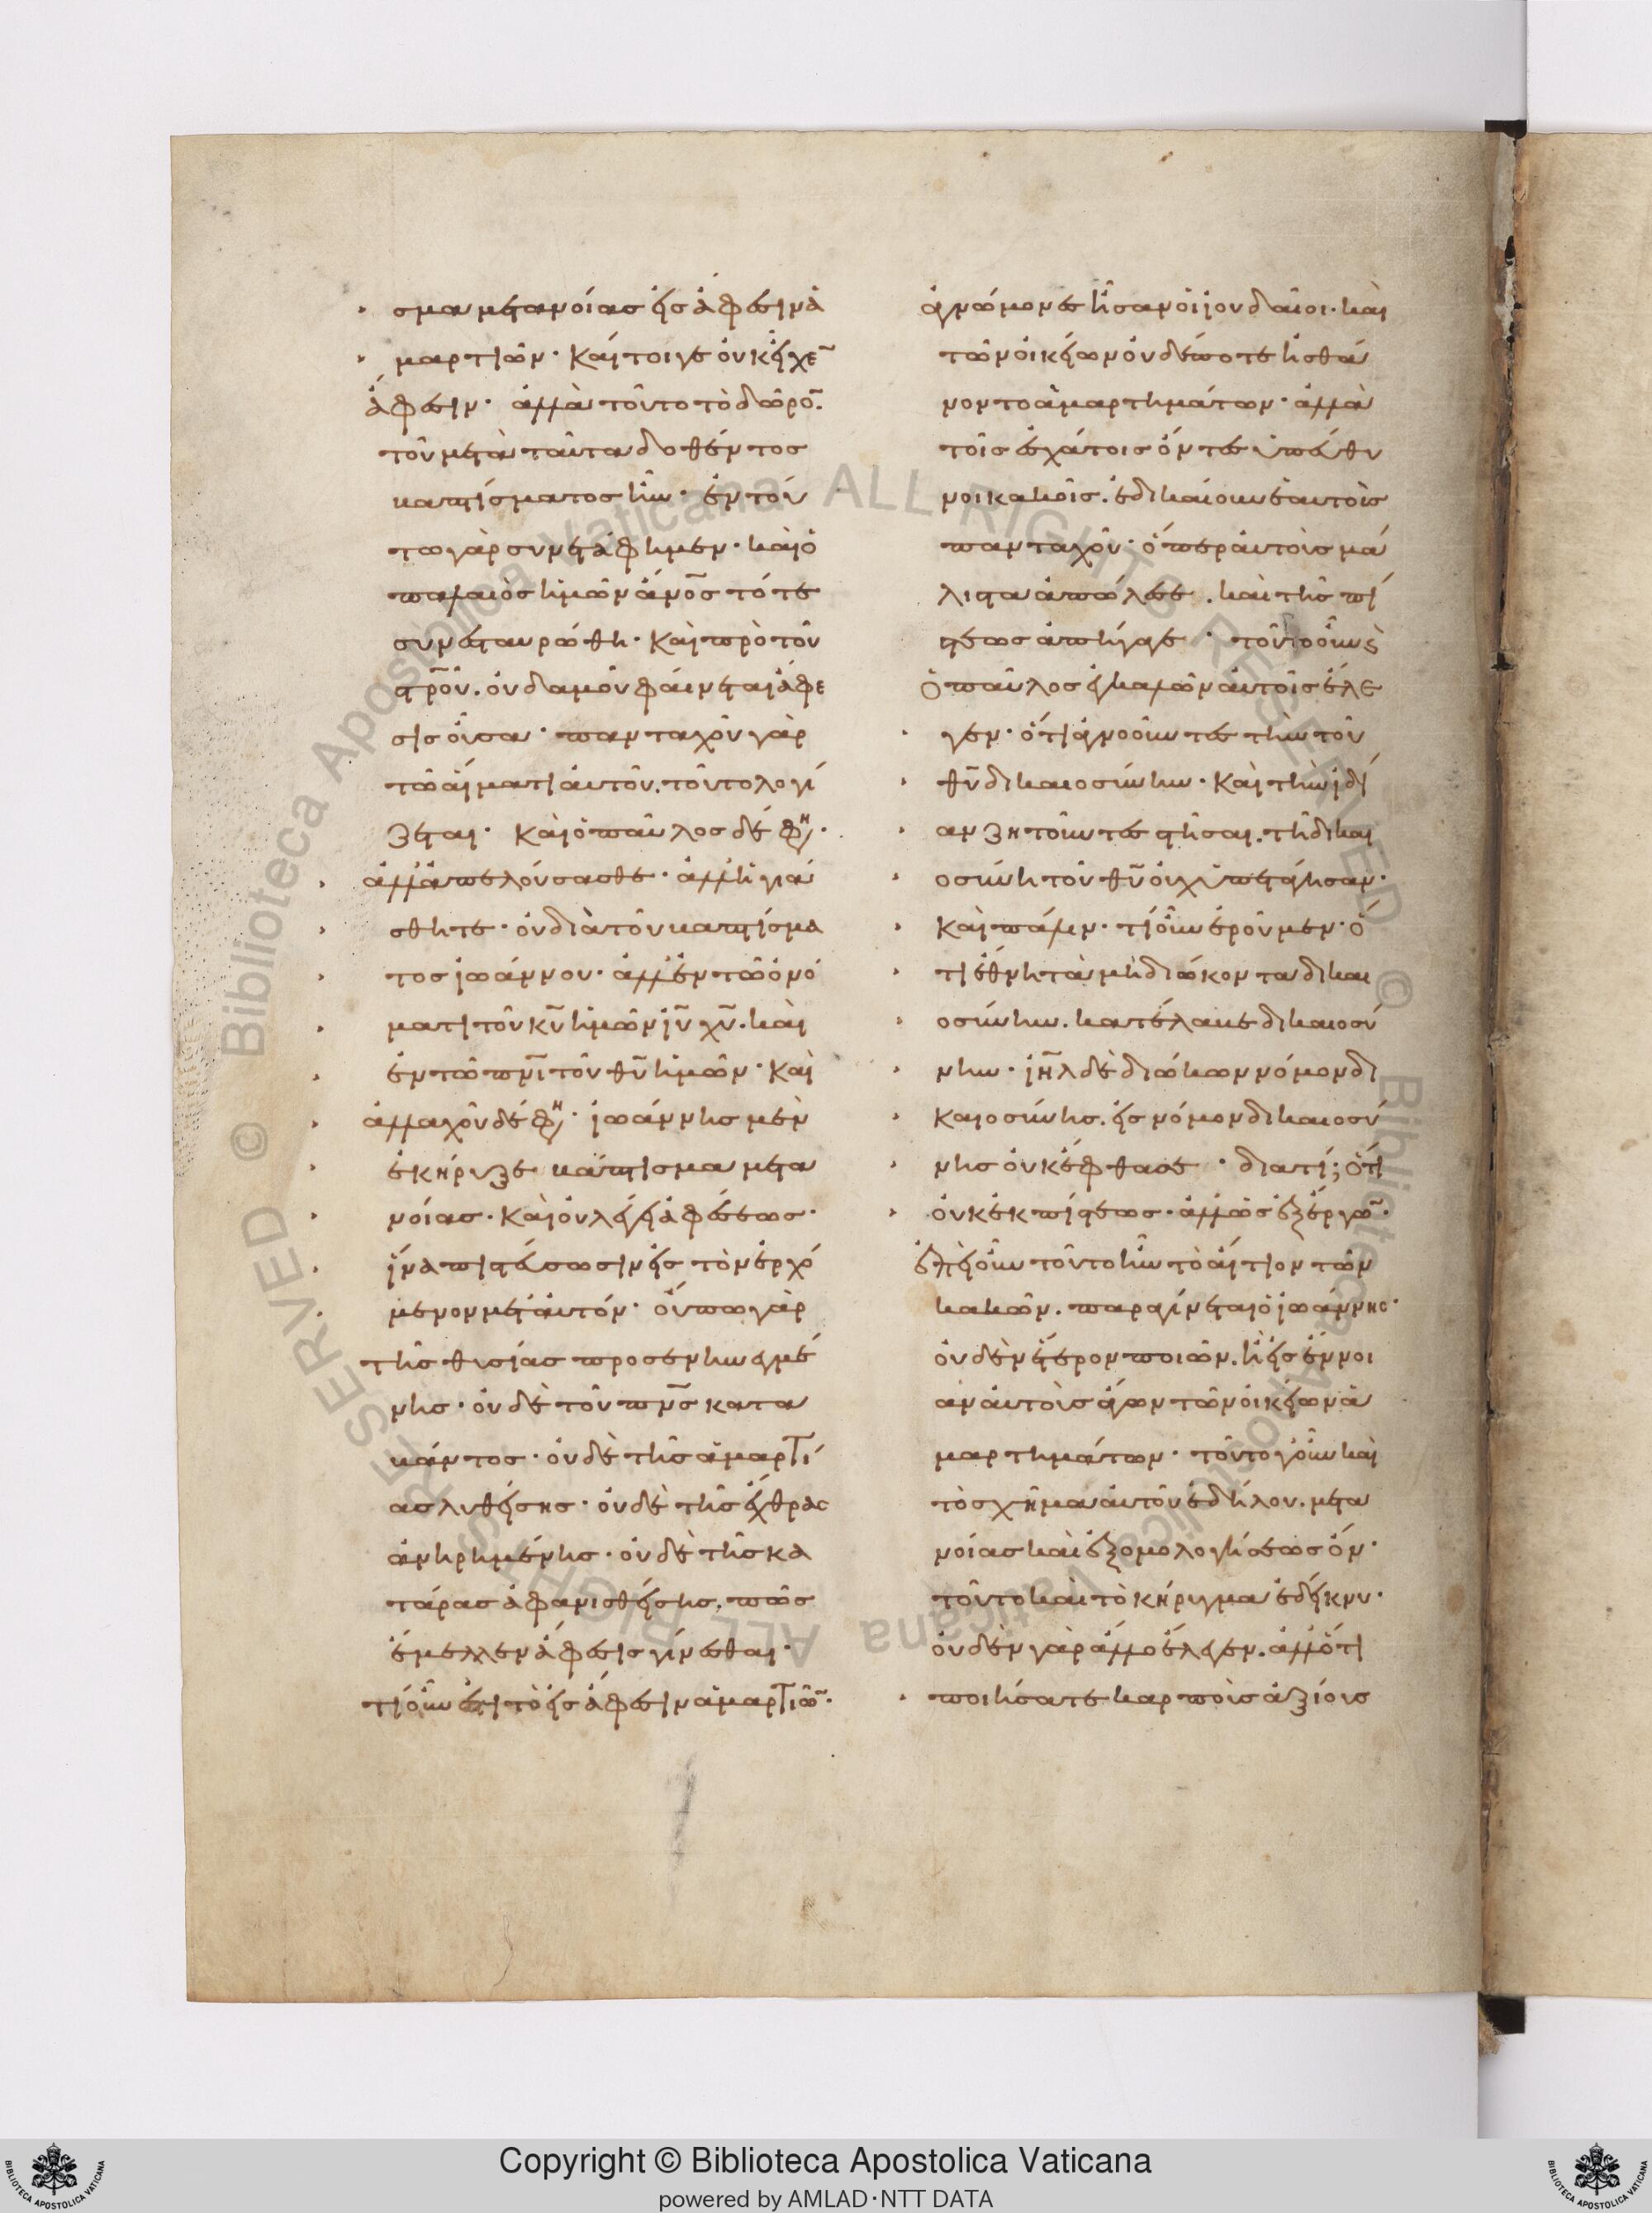 σμα μετανοίας εἰς ἄφεσιν ἁ
μαρτιῶν· καί τοιγε οὐκ εἶχε̅
ἄφεσιν· ἀλλὰ τοῦτο τὸ δῶρο̅·
τοῦ μετὰ ταῦτα δοθέντος
βαπτίσματος ἦν· ἐν τού
τω γὰρ συνετάφημεν· καὶ ὁ
παλαιὸς ἡμῶν ἄν̅ο̅ς τότε
συνεσταυρώθη· καὶ πρὸ τοῦ
στ̅ρ̅οῦ. οὐδαμοῦ φαίνεται ἄφε
σις οὖσα· πανταχοῦ γὰρ
τῶ αἵματι αὐτοῦ. τοῦτο λογί
ζεται· καὶ ὁ παῦλος δέ φη·
ἀλλὰ ἀπελούσασθε· ἀλλ' ἡγιά
σθητε· οὐ διὰ τοῦ βαπτίσμα
τος ἰωάννου· ἀλλ' ἐν τῶ ὀνό
ματι τοῦ κ̅υ̅ ἡμῶν ἰ̅υ̅ χ̅υ̅. καὶ
ἐν τῶ π̅ν̅ι̅ τοῦ θ̅υ̅ ἡμῶν· καὶ
ἀλλαχοῦ δέ φη· ἰωάννης μὲν
ἐκήρυξε βάπτισμα μετα
νοίας· καὶ οὐ λέγει ἀφέσεως·
ἵνα πιστεύσωσιν εἰς τὸν ἐρχό
μενον μετ' αὐτόν· οὔπω γὰρ
τῆς θυσίας προσενηνεγμέ
νης· οὐδὲ τοῦ π̅ν̅ς̅ κατα
βάντος· οὐδὲ τῆς ἁμαρτί
ας λυθείσης· οὐδὲ τῆς ἔχθρας
ἀνηρημένης· οὐδὲ τῆς κα
τάρας ἀφανισθείσης, πῶς
ἔμελλεν ἄφεσις γίνεσθαι·
τί οὖν ἐστι τὸ εἰς ἄφεσιν ἁμαρτιῶ̅·
ἀγνώμονες ἦσαν οἱ ἰουδαῖοι· καὶ
τῶν οἰκείων οὐδέποτε ἠσθά
νοντο ἁμαρτημάτων· ἀλλὰ
τοῖς ἐσχάτοις ὄντες ὑπεύθυ
νοι κακοῖς. ἐδικαίουν ἑαυτοὺς
πανταχοῦ· ὅπερ αὐτοὺς μά
λιστα ἀπώλεσε. καὶ τῆς πί
στεως ἀπήγαγε· τοῦτο οὖν
ὁ παῦλος ἐγκαλῶν αὐτοῖς ἔλε
γεν· ὅτι ἀγνοοῦντες τὴν τοῦ
θ̅υ̅ δικαιοσύνην· καὶ τὴν ἰδί
αν ζητοῦντες στῆσαι. τῆ δικαι
οσύνη τοῦ θ̅υ̅ οὐχ ὑπετάγησαν·
καὶ πάλιν· τί οὖν ἐροῦμεν· ὅ
τι ἔθνη τὰ μὴ διώκοντα δικαι
οσύνην. κατέλαβε δικαιοσύ
νην· ἰ̅η̅λ̅ δὲ διώκων νόμον δι
καιοσύνης. εἰς νόμον δικαιοσύ
νης οὐκ ἔφθασε· διατί; ὅτι
οὐκ ἐκ πίστεως· ἀλλ' ὡς ἐξ ἔργω̅·
ἐπεὶ οὖν τοῦτο ἦν τὸ αἴτιον τῶν
κακῶν. παραγίνεται ὁ ἰωάννης·
οὐδὲν ἕτερον ποιῶν. ἢ εἰς ἔννοι
αν αὐτοὺς ἄγων τῶν οἰκείων ἁ
μαρτημάτων· τοῦτο γοῦν καὶ
τὸ σχῆμα αὐτοῦ ἐδήλου. μετα
νοίας καὶ ἐξομολογήσεως ὄν·
τοῦτο καὶ τὸ κήρυγμα ἐδείκνυ·
οὐδὲν γὰρ ἄλλο ἔλεγεν. ἀλλ' ὅτι
ποιήσατε καρποὺς ἀξίους